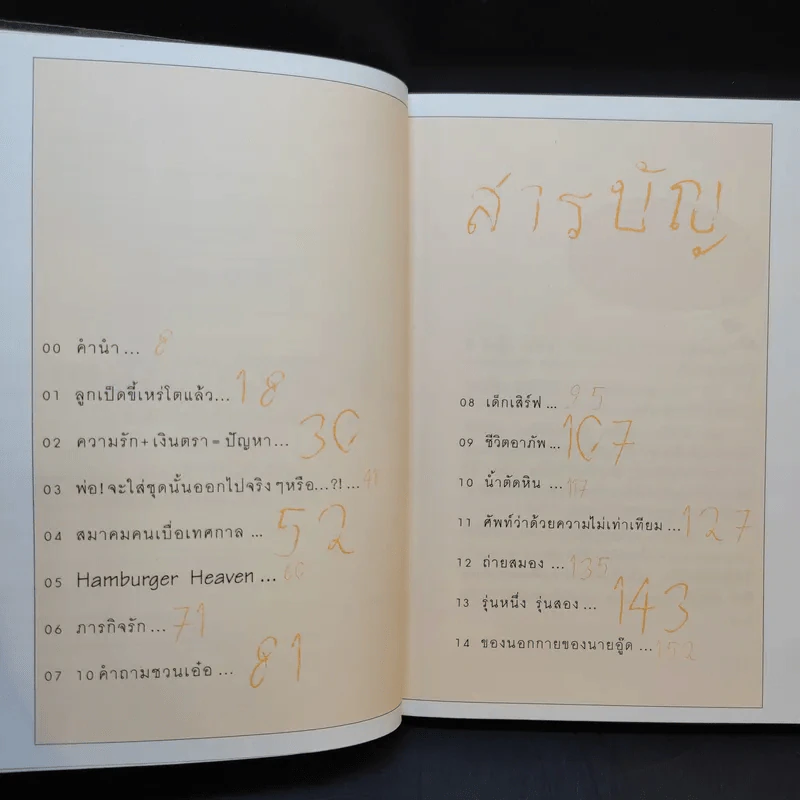 00 คำนำ ... 8
01 ลูกเป็ดขี้เหร่โตแล้ว... 18
02 ความรัก + เงินตรา = ปัญหา... 30
03 พ่อ! จะใส่ชุดนั้นออกไปจริงๆหรือ...?! ... 41
04 สมาคมคนเบื่อเทศกาล ... 52
05 Hamburger Heaven ... 60
06 ภารกิจรัก ... 71
07 10 คำถามชวนเอ๋อ ... 81
สารบัญ
08 เด็กเสิร์ฟ ... 95
09 ชีวิตอาภัพ ... 107
10 น้ำตัดหิน ... 117
11 ศัพท์ว่าด้วยความไม่เท่าเทียม ... 127
12 ถ่ายสมอง ... 135
13 รุ่นหนึ่ง รุ่นสอง ... 143
14 ของนอกกายของนายอู๊ด ... 152